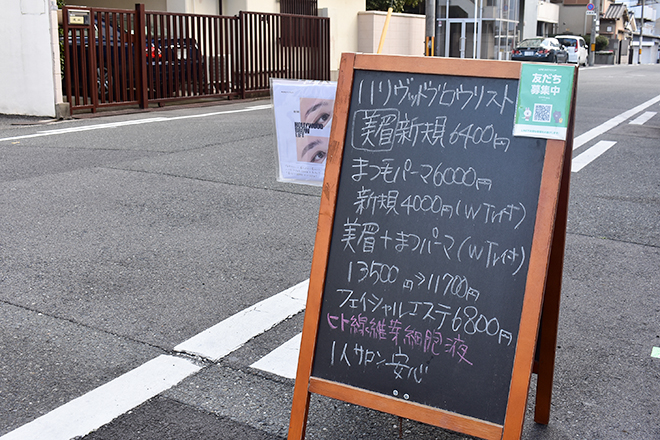 ハリウッドブロウリスト
美眉新規6400円
まつ毛パーマ6000円
新規4000円(WTレイナ)
美眉+まつパーマ(WTレイナ)
13500円→11700円
フェイシャルエステ6800円
ヒト線維芽細胞液
1人サロン安心
友だち
募集中
HOLLYWOOD
BROW
LIFT